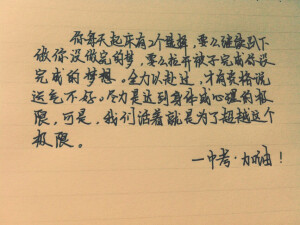 你每天起床有2个选择，要么继续趴下
做你没做完的梦，要么拉开被子完成你没
完成的梦想。全力以赴过，才有资格说
运气不好。尽力是达到身体或心理的极
限，可是，我们活着就是为了超越这个
极限。
—中考·加油！